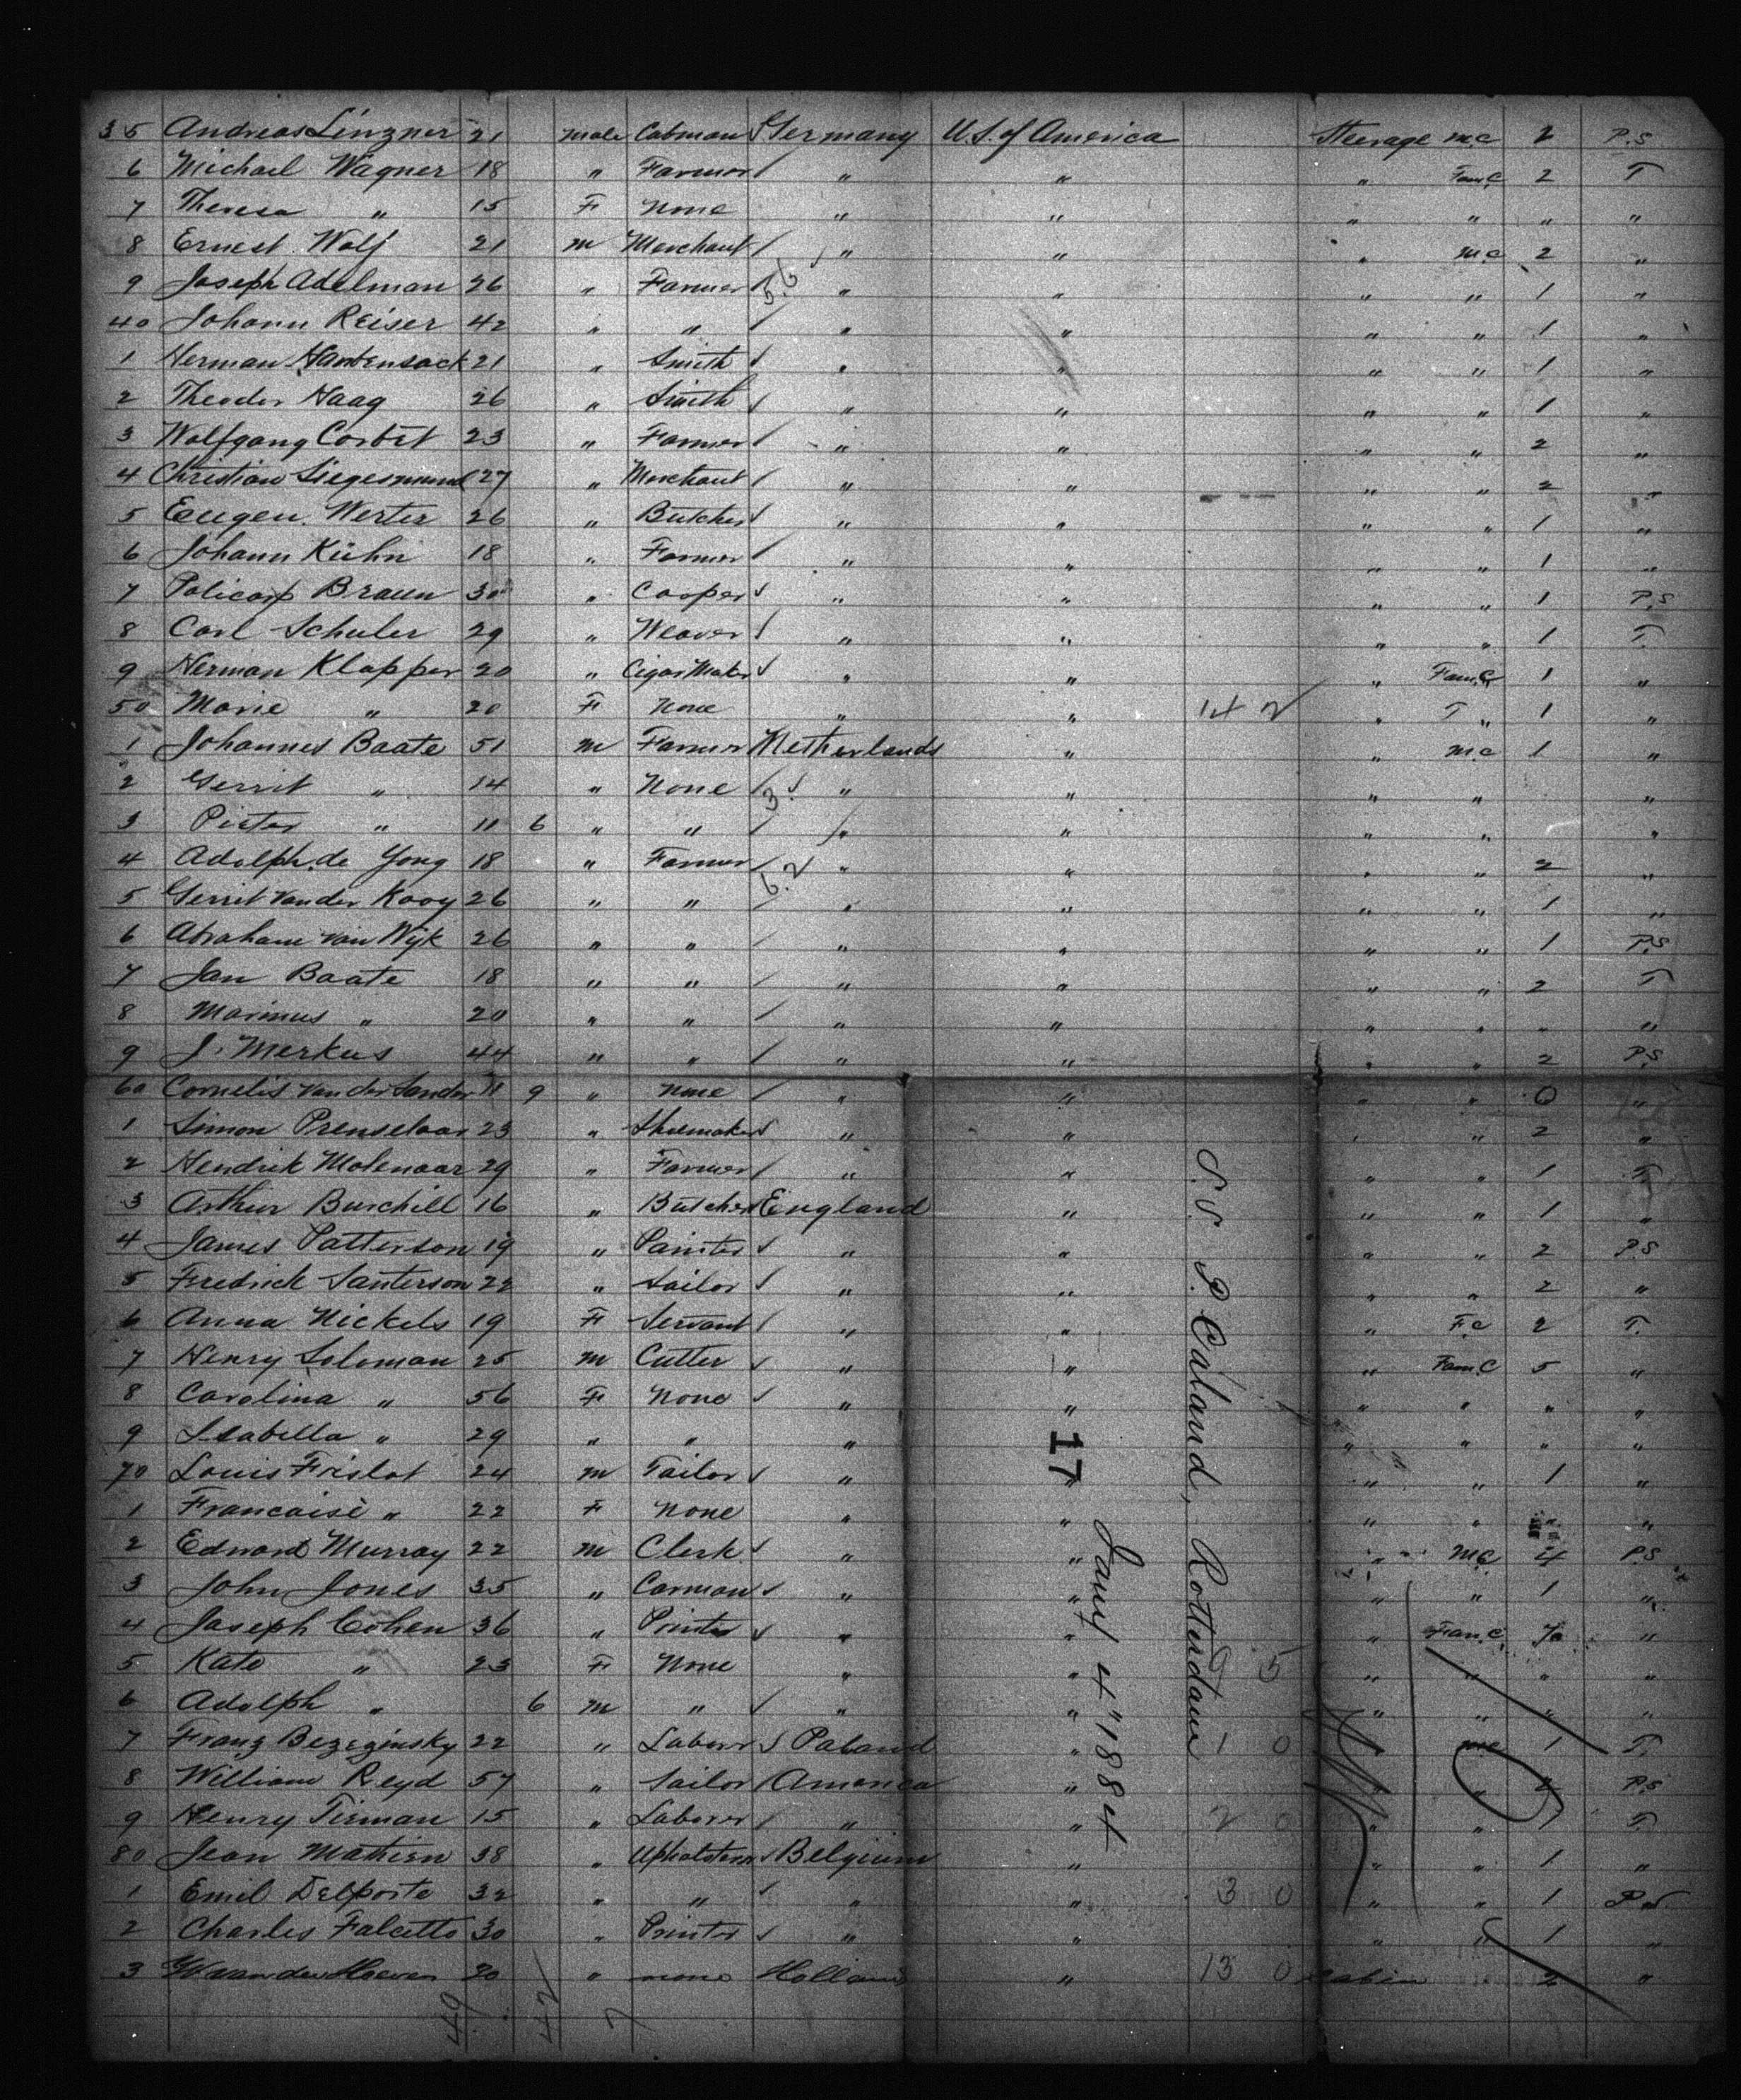 35 Andreas Linzner 21 male Cabman Germany U.S. of America Steerage m.c 2 P.S
6 Michael Wagner 18 " Farmer / " " " Fam.C 2 T
7 Theresa " 15 F None " " " " " "
8 Ernest Wolf 21 m Merchant / " " " m.c 2 "
9 Joseph Adelman 26 " Farmer / " " " " 1 "
40 Johann Reiser 42 " " / " " " " 1 "
1 Herman Hartensack 21 " Smith ✓ " " " " 1 "
2 Theodor Haag 26 " Smith ✓ " " " " 1 "
3 Wolfgang Corbet 23 " Farmer / " " " " 2 "
4 Christian Siegesmund 27 " Merchant / " " " " 2 "
5 Eugen Werter 26 " Butcher ✓ " " " " 1 "
6 Johann Kühn 18 " Farmer / " " " " 1 "
7 Policarp Braun 30 " Cooper ✓ " " " " 1 P.S
8 Carl Schuler 29 " Weaver / " " " " 1 T.
9 Herman Klapper 20 " Cigar Maker ✓ " " " Fam.C 1 "
50 Marie " 20 F None " " 14 2 " T " 1 "
1 Johannes Baate 51 m Farmer Netherlands " " m.c 1 "
2 Gerrit " 14 " None / " " " " "
3 Pieter " 11 6 " " / " " " " "
4 Adolph de Yong 18 " Farmer / " " " " 2 "
5 Gerrit van der Kooy 26 " " / " " " " 1 "
6 Abraham van Wyk 26 " " / " " " " 1 P.S
7 Jan Baate 18 " " / " " " " 2 T
8 Marinus " 20 " " / " " " " " "
9 J. Merkus 44 " " / " " " " 2 P.S
60 Cornelis van der Sander 11 9 " None / " " " " 0 "
1 Simon Prenselaar 23 " Shoemaker ✓ " " " " 2 "
2 Hendrik Molenaar 29 " Farmer / " " " " 1 T.
3 Arthur Burchill 16 " Butcher England " " " 1 "
4 James Patterson 19 " Painter ✓ " " " " 2 P.S
5 Fredrick Santerson 22 " Sailor ✓ " " " " 2 "
6 Anna Nickels 19 F Servant / " " " F.c 2 T.
7 Henry Soloman 25 m Cutter ✓ " " " Fam.C 5 "
8 Carolina " 56 F None ✓ " " " " " "
9 Isabella " 29 " " " " " " " "
70 Louis Frislot 24 m Tailor ✓ " " " " 1 "
1 Francaisè " 22 F None " " " " " "
2 Edward Murray 22 m Clerk ✓ " " " M.C 4 P.S
3 John Jones 35 " Carman ✓ " " " " 1 "
4 Joseph Cohen 36 " Printer ✓ " " " Fam.C "
5 Kate " 23 F None " " 9 5 " " " "
6 Adolph " 6 m " ✓ " " " " " "
7 Franz Bezezinsky 22 " Laborr ✓ Paland " 1 0 " m.c 1 T.
8 William Reyd 57 " Sailor / America " " " 2 P.S
9 Henry Tieman 15 " Laborer / " " 2 0 " " 1 T.
80 Jean Mathien 38 " Upholsterer ✓ Belgium " " " 1 "
1 Emil Delporte 32 " " ✓ " " 3 0 " " 1 P.S.
2 Charles Falcetto 30 " Printer ✓ " " " " 1 "
3 van der Hoeven 20 " none Holland " 13 0 Cabin 2 "
49 42 7
5.6
3.
6.2
S.S. P. Caland, Rotterdam
17
Jany 4" 1884